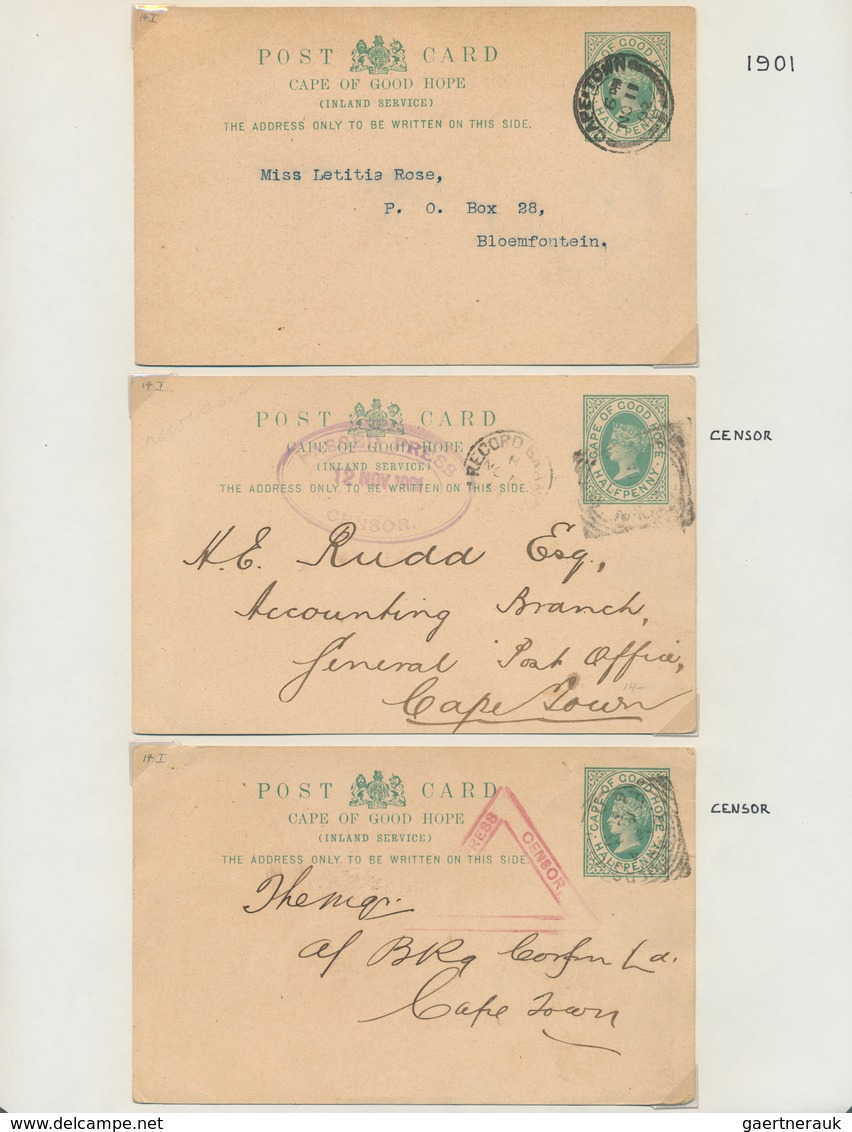 14-I
POST CARD
CAPE OF GOOD HOPE
(INLAND SERVICE)
THE ADDRESS ONLY TO BE WRITTEN ON THIS SIDE.
CAPE OF GOOD HOPE
HALFPENNY
CAPE-TOWN
NO 11
1901
Miss Letitia Rose,
P. O. Box 28,
Bloemfontein.
14-I
POST CARD
CAPE OF GOOD HOPE
(INLAND SERVICE)
THE ADDRESS ONLY TO BE WRITTEN ON THIS SIDE.
CAPE OF GOOD HOPE
HALFPENNY
PRESS
12 NOV 1901
CENSOR.
RECORD
CENSOR
H.E. Rudd Esq,
Accounting Branch,
General Post Office,
14-
Cape Town
14-I
POST CARD
CAPE OF GOOD HOPE
(INLAND SERVICE)
THE ADDRESS ONLY TO BE WRITTEN ON THIS SIDE.
CAPE OF GOOD HOPE
HALFPENNY
CENSOR.
CENSOR
The mgr.
af BKg Corpn Ld.
Cape Town
www.delcampe.net
gaertnerauk